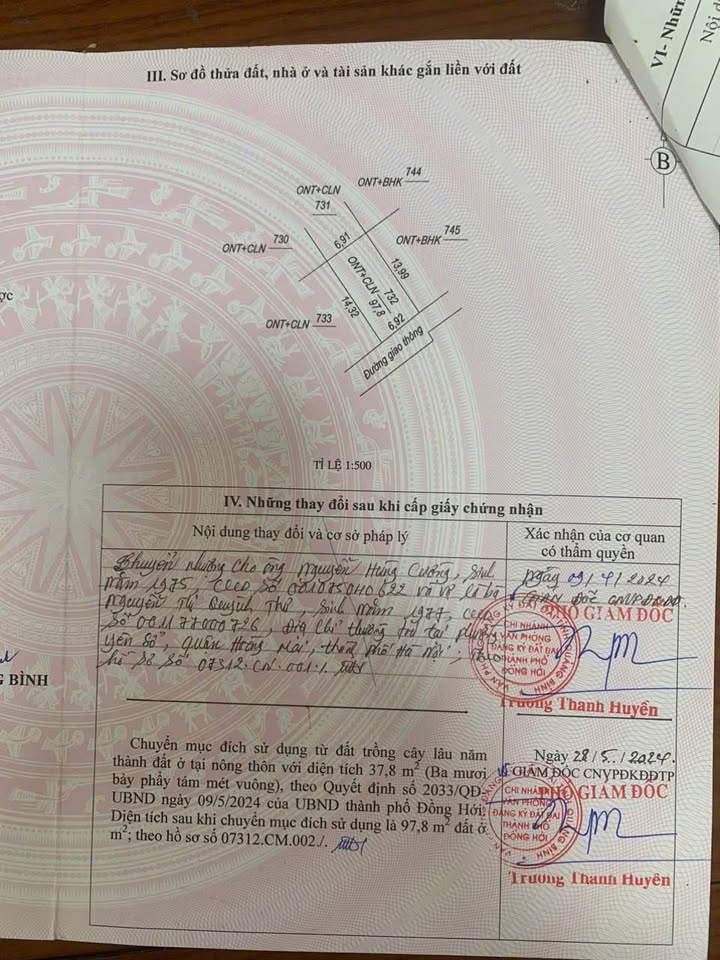 VI- Nhữn
Nội d
III. Sơ đồ thửa đất, nhà ở và tài sản khác gắn liền với đất
B
ONT+BHK 744
ONT+CLN 731
ONT+BHK 745
ONT+CLN 730
6,91
13,99
ONT+CLN 732
97,8
14,32
6,92
ONT+CLN 733
Đường giao thông
ợc
TỈ LỆ 1:500
IV. Những thay đổi sau khi cấp giấy chứng nhận
Nội dung thay đổi và cơ sở pháp lý
Xác nhận của cơ quan có thẩm quyền
Chuyển nhượng cho ông Nguyễn Hùng Cường, Sinh
năm 1975, CCCD Số 001075040622 và vợ là bà
Nguyễn Thị Quỳnh Thư, Sinh năm 1977, CCCD
Số 001177000726, Địa chỉ thường trú tại phường
Yên Sở, quận Hoàng Mai, thành phố Hà Nội; theo
hồ sơ số 07312.CN.001./.
Ngày 09/4/2024
PHÓ GIÁM ĐỐC
CHI NHÁNH
VĂN PHÒNG
ĐĂNG KÝ ĐẤT ĐAI
THÀNH PHỐ
ĐỒNG HỚI
Trương Thanh Huyền
G BÌNH
Chuyển mục đích sử dụng từ đất trồng cây lâu năm
thành đất ở tại nông thôn với diện tích 37,8 m² (Ba mươi
bảy phẩy tám mét vuông), theo Quyết định số 2033/QĐ-
UBND ngày 09/5/2024 của UBND thành phố Đồng Hới;
Diện tích sau khi chuyển mục đích sử dụng là 97,8 m² đất ở
m²; theo hồ sơ số 07312.CM.002./.
Ngày 28/5/2024.
GIÁM ĐỐC CNVPĐKĐĐTP
PHÓ GIÁM ĐỐC
CHI NHÁNH
VĂN PHÒNG
ĐĂNG KÝ ĐẤT ĐAI
THÀNH PHỐ
ĐỒNG HỚI
Trương Thanh Huyền